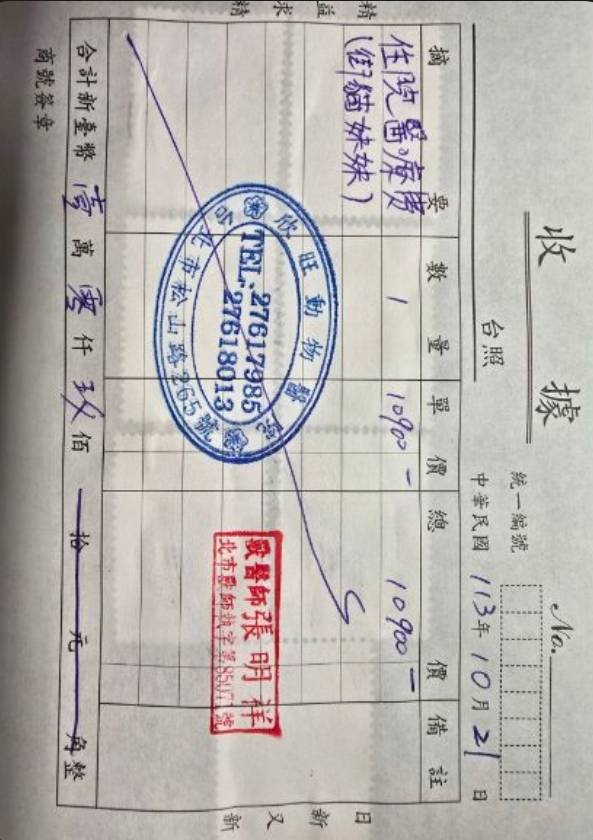 收據
No.
統一編號
台照
中華民國 113年 10月 21日
摘要 數量 單價 總價 備註
住院醫療費 1 10900- 10900-
(街貓妹妹)
欣旺動物醫院
TEL:27617985
27618013
北市松山路265號
獸醫師張明祥
合計新臺幣 壹萬零仟玖佰拾元角整
商號簽章
精益求精
日新又新